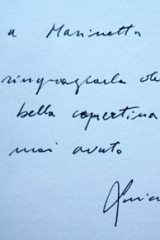 a Marinetta
ringraziarla
bella copertina
mai avuto